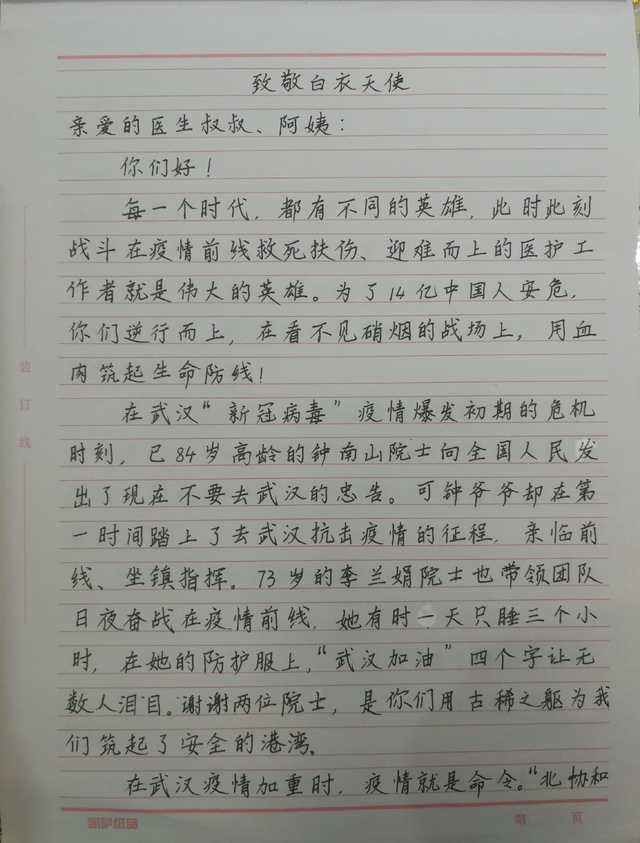 致敬白衣天使
亲爱的医生叔叔、阿姨：
你们好！
每一个时代，都有不同的英雄，此时此刻
战斗在疫情前线救死扶伤、迎难而上的医护工
作者就是伟大的英雄。为了14亿中国人安危，
你们逆行而上，在看不见硝烟的战场上，用血
肉筑起生命防线！
在武汉“新冠病毒”疫情爆发初期的危机
时刻，已84岁高龄的钟南山院士向全国人民发
出了现在不要去武汉的忠告。可钟爷爷却在第
一时间踏上了去武汉抗击疫情的征程，亲临前
线、坐镇指挥。73岁的李兰娟院士也带领团队
日夜奋战在疫情前线，她有时一天只睡三个小
时，在她的防护服上，“武汉加油”四个字让无
数人泪目。谢谢两位院士，是你们用古稀之躯为我
们筑起了安全的港湾、
在武汉疫情加重时，疫情就是命令。“北协和
装订线
凯萨纸品
第 页